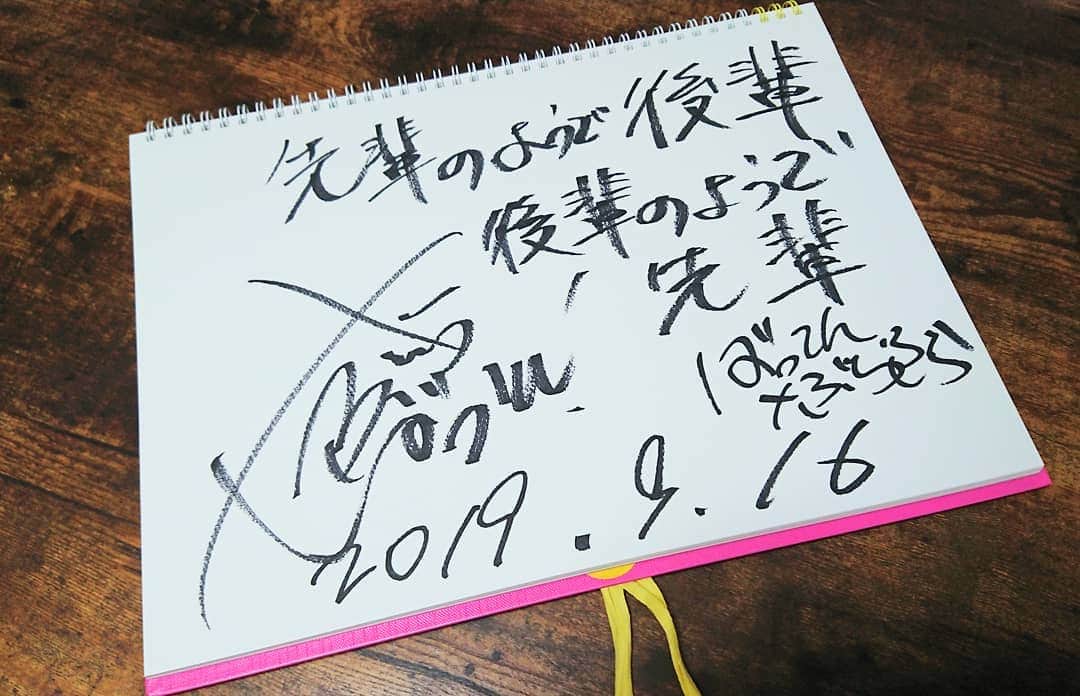 先輩のようで後輩
後輩のようで
先輩
ばってん
2019.9.16